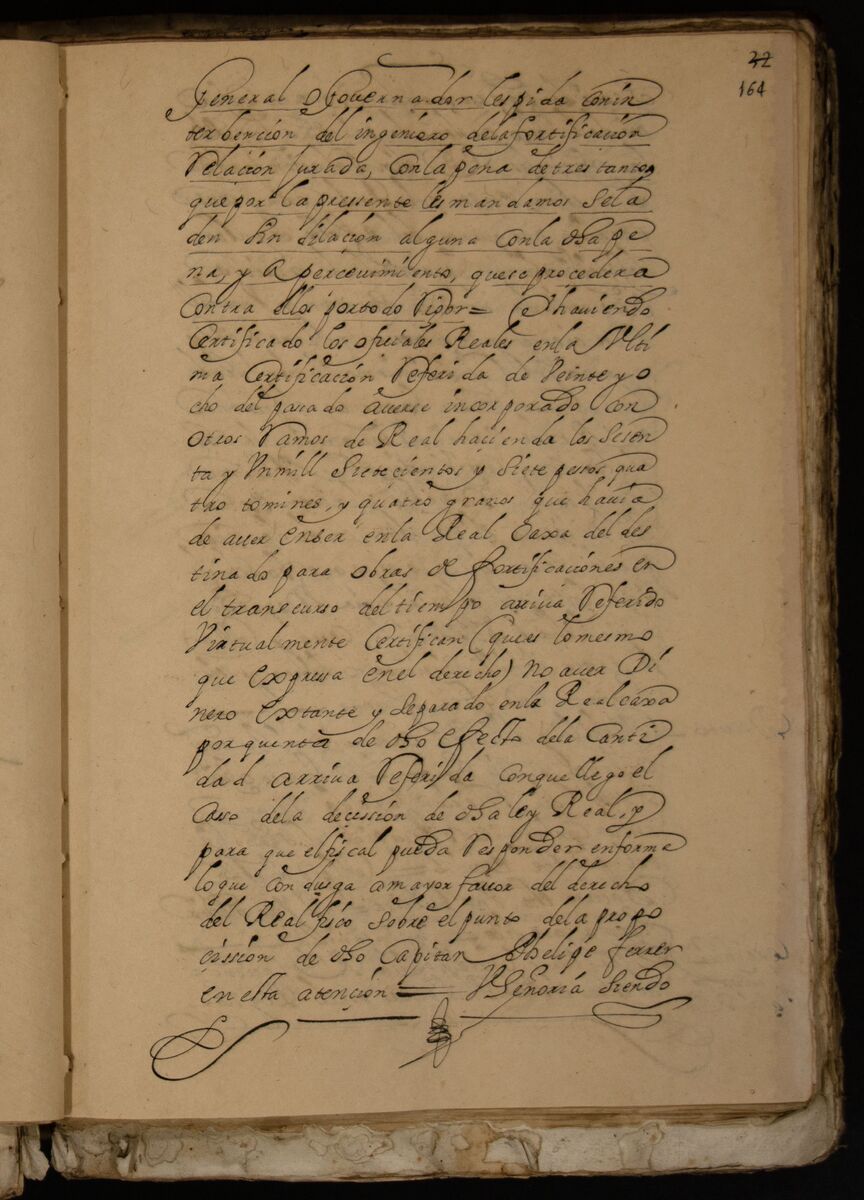 32
164
General o Governador les pida con in
terbención del ingeniero dela fortificación
Relación Jurada, con la pena de tres tantos
que por la pressente les mandamos se la
den sin dilación alguna con la dha pe
na, y Apercevimiento, que se procedera
contra ellos por todo Rigor = Y haviendo
Certificado los oficiales Reales en la Ulti
ma Certificación Referida de Veinte y o
cho del pasado averse incorporado con
otros Ramos de Real hacienda los sesen
ta y Un mill Sietecientos y Siete pessos, qua
tro tomines, y quatro granos que havia
de aver en ser en la Real Caxa del des
tinado para obras de fortificaciones en
el transcurso del tiempo arriva Referido
Virtualmente Certifican (que es lo mesmo
que expressa en el derecho) No aver Di
nero extante y separado en la Real caxa
por quenta de dho efecto dela Canti
dad arriva Referida con que llego el
caso dela decission de dha ley Real, y
para que el fiscal pueda Responder enforme
lo que conduzga a mayor favor del derecho
del Real fisco sobre el punto dela propo
cission de dho Capitan Phelipe Ferrer
en esta atención = VSeñoria siendo